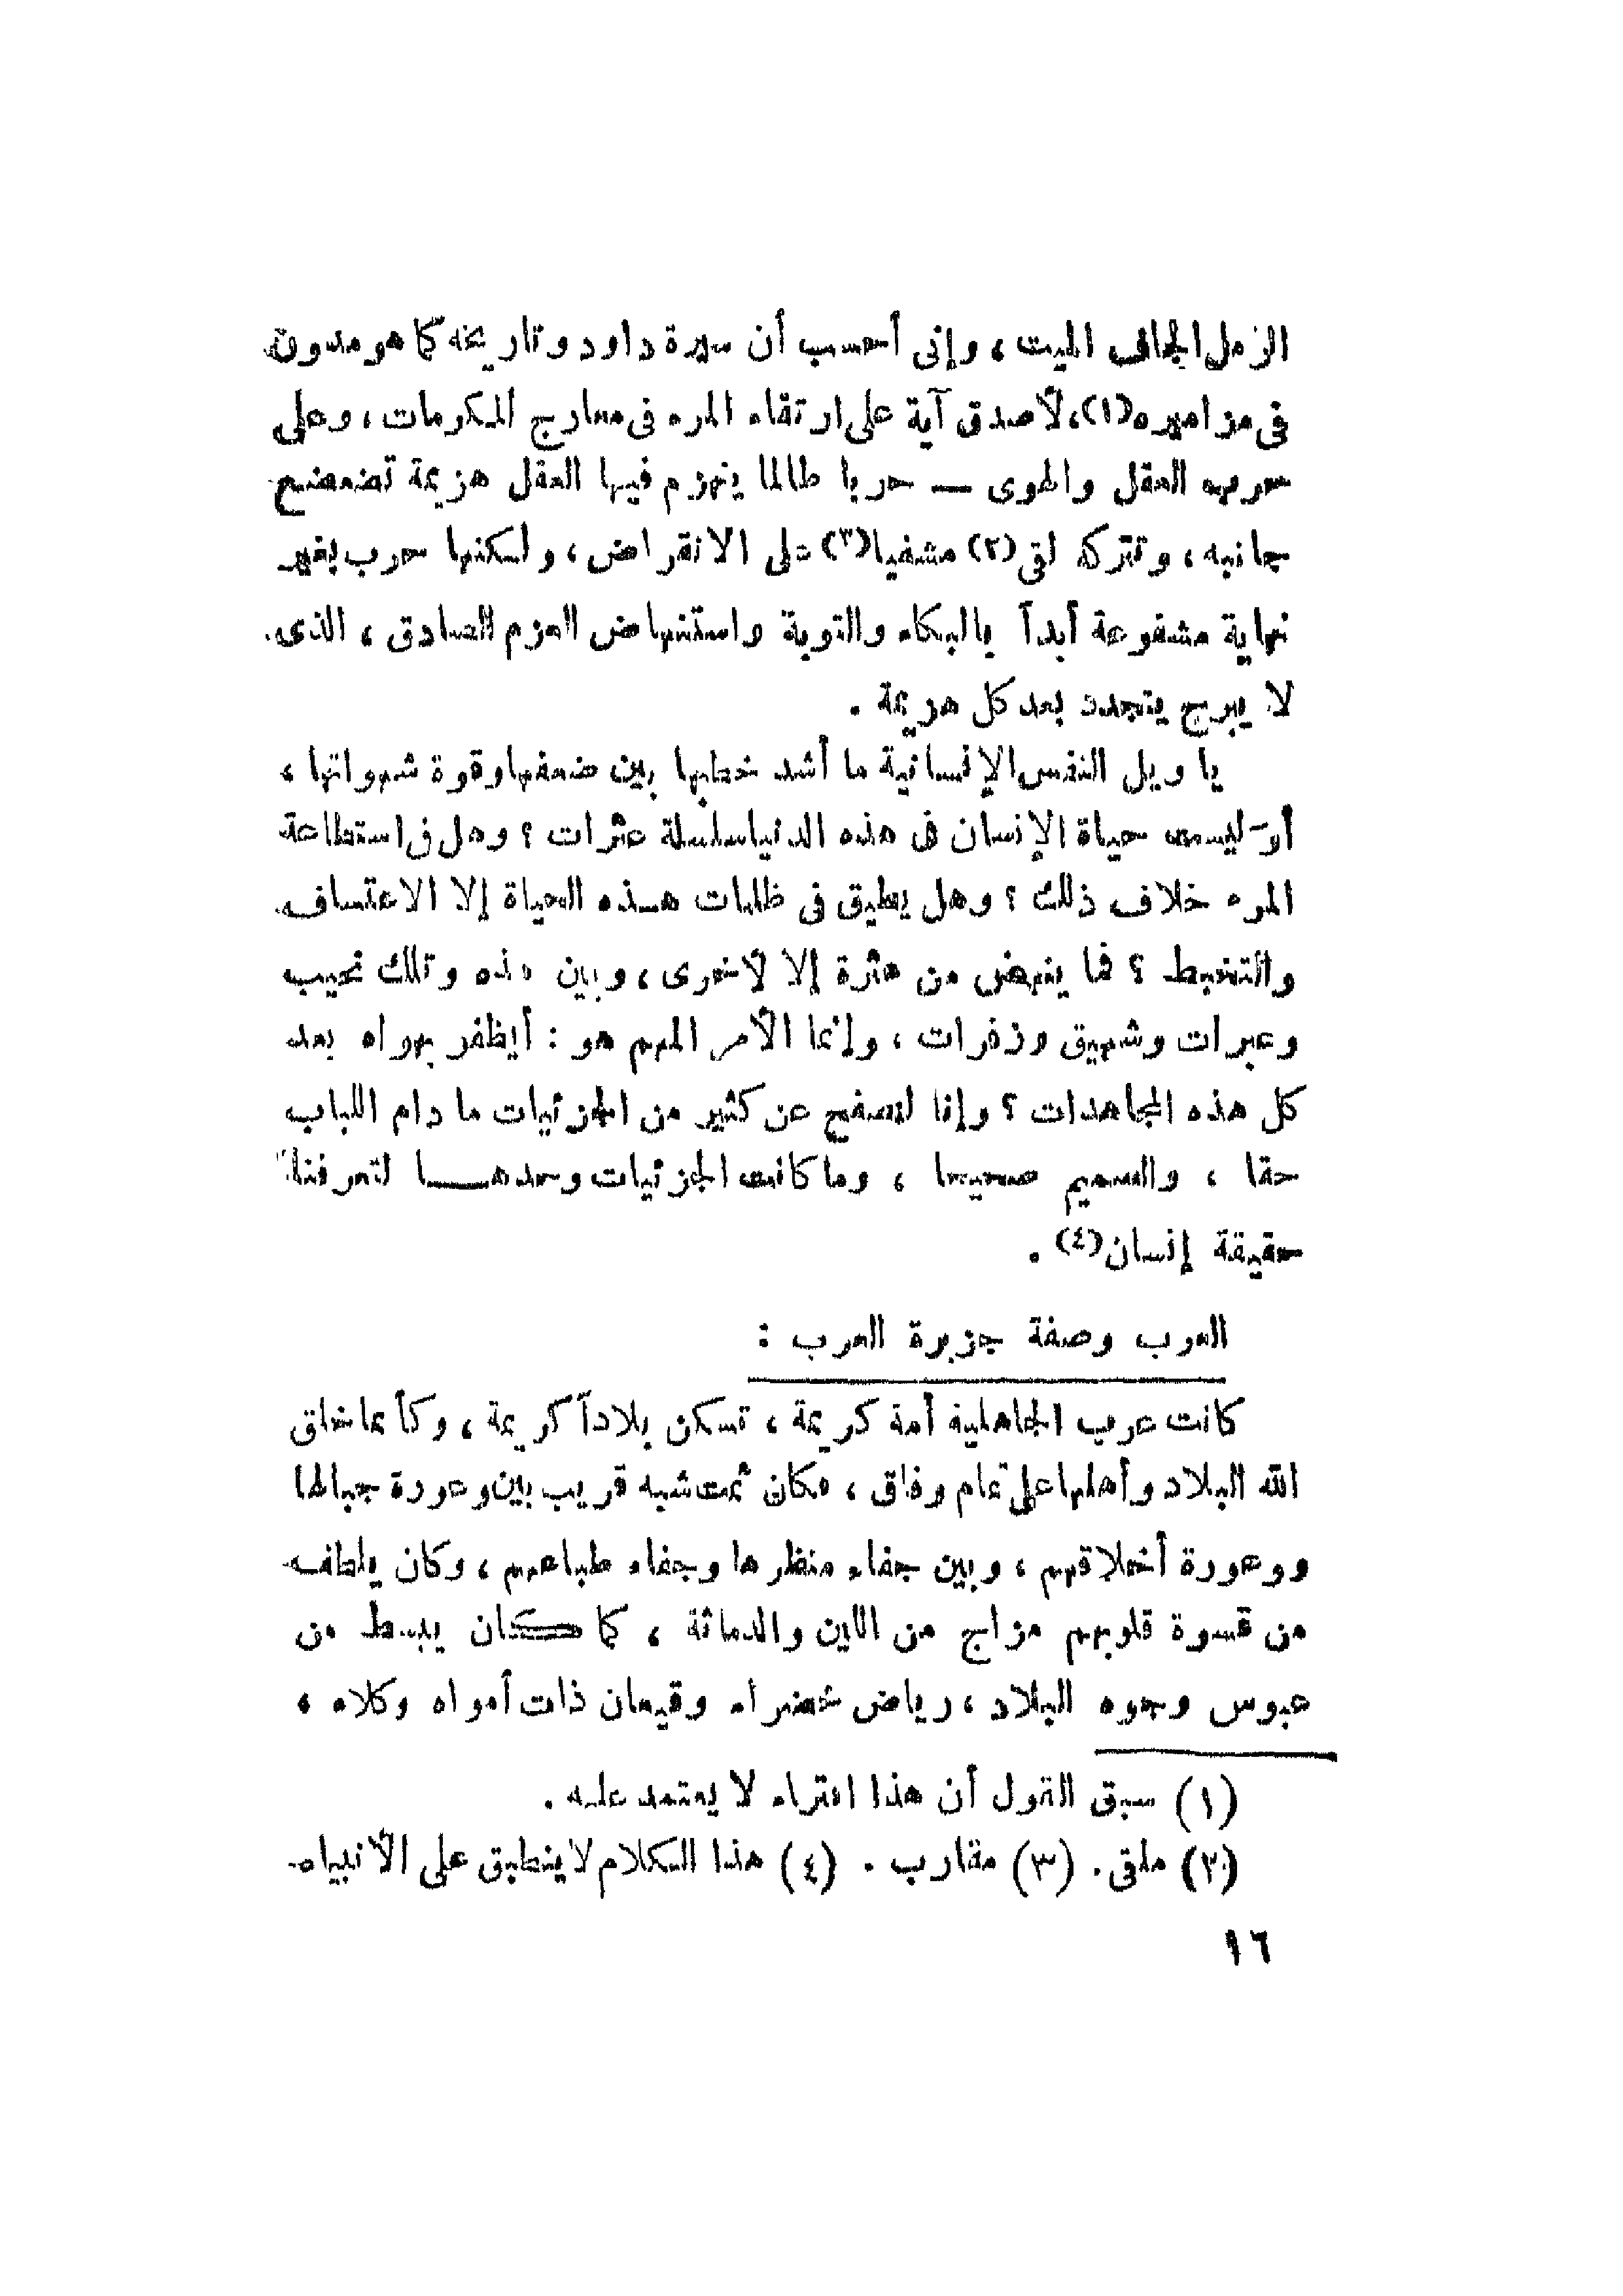 الرمل الجاف الميت ، وإنى أحسب أن سيرة داود وتاريخه كما هو مدون
فى مزاميره(١)، لأصدق آية على ارتقاء المرء فى معارج المكرمات ، وعلى
حرب العقل والهوى — حربا طالما ينهزم فيها العقل هزيمة تضعضع
جانبه ، وتتركه لقى(٢) مشفيا(٣) على الانقراض ، ولكنها حرب بغير
نهاية مشفوعة أبداً بالبكاء والتوبة واستنهاض العزم الصادق ، الذى
لا يبرح يتجدد بعد كل هزيمة .
يا ويل النفس الإنسانية ما أشد خطبها بين ضعفها وقوة شهواتها ،
أوَ ليست حياة الإنسان فى هذه الدنيا سلسلة عثرات ؟ وهل فى استطاعة
المرء خلاف ذلك ؟ وهل يطيق فى ظلمات هـذه الحياة إلا الاعتساف
والتخبط ؟ فما ينهض من عثرة إلا لأخرى ، وبين هذه وتلك نحيب
وعبرات وشهيق وزفرات ، وإنما الأمر المهم هو : أيظفر بهواه بعد
كل هذه المجاهدات ؟ وإنا لنصفح عن كثير من الجزئيات ما دام اللباب
حقا ، والصميم صحيحا ، وما كانت الجزئيات وحدهـــا لتعرفنا
حقيقة إنسان(٤) .
العرب وصفة جزيرة العرب :
كانت عرب الجاهلية أمة كريمة ، تسكن بلاداً كريمة ، وكأنما خلق
الله البلاد وأهلها على تمام وفاق ، فكان ثمت شبه قريب بين وعورة جبالها
ووعورة أخلاقهم ، وبين جفاء منظرها وجفاء طباعهم ، وكان يلطف
من قسوة قلوبهم مزاج من اللين والدماثة ، كما كـــان يبسط من
عبوس وجوه البلاد ، رياض خضراء وقيعان ذات أمواه وكلاء ،
(١) سبق القول أن هذا افتراء لا يعتمد عليه .
(٢) ملقى . (٣) مقارب . (٤) هذا الكلام لا ينطبق على الأنبياء
١٦